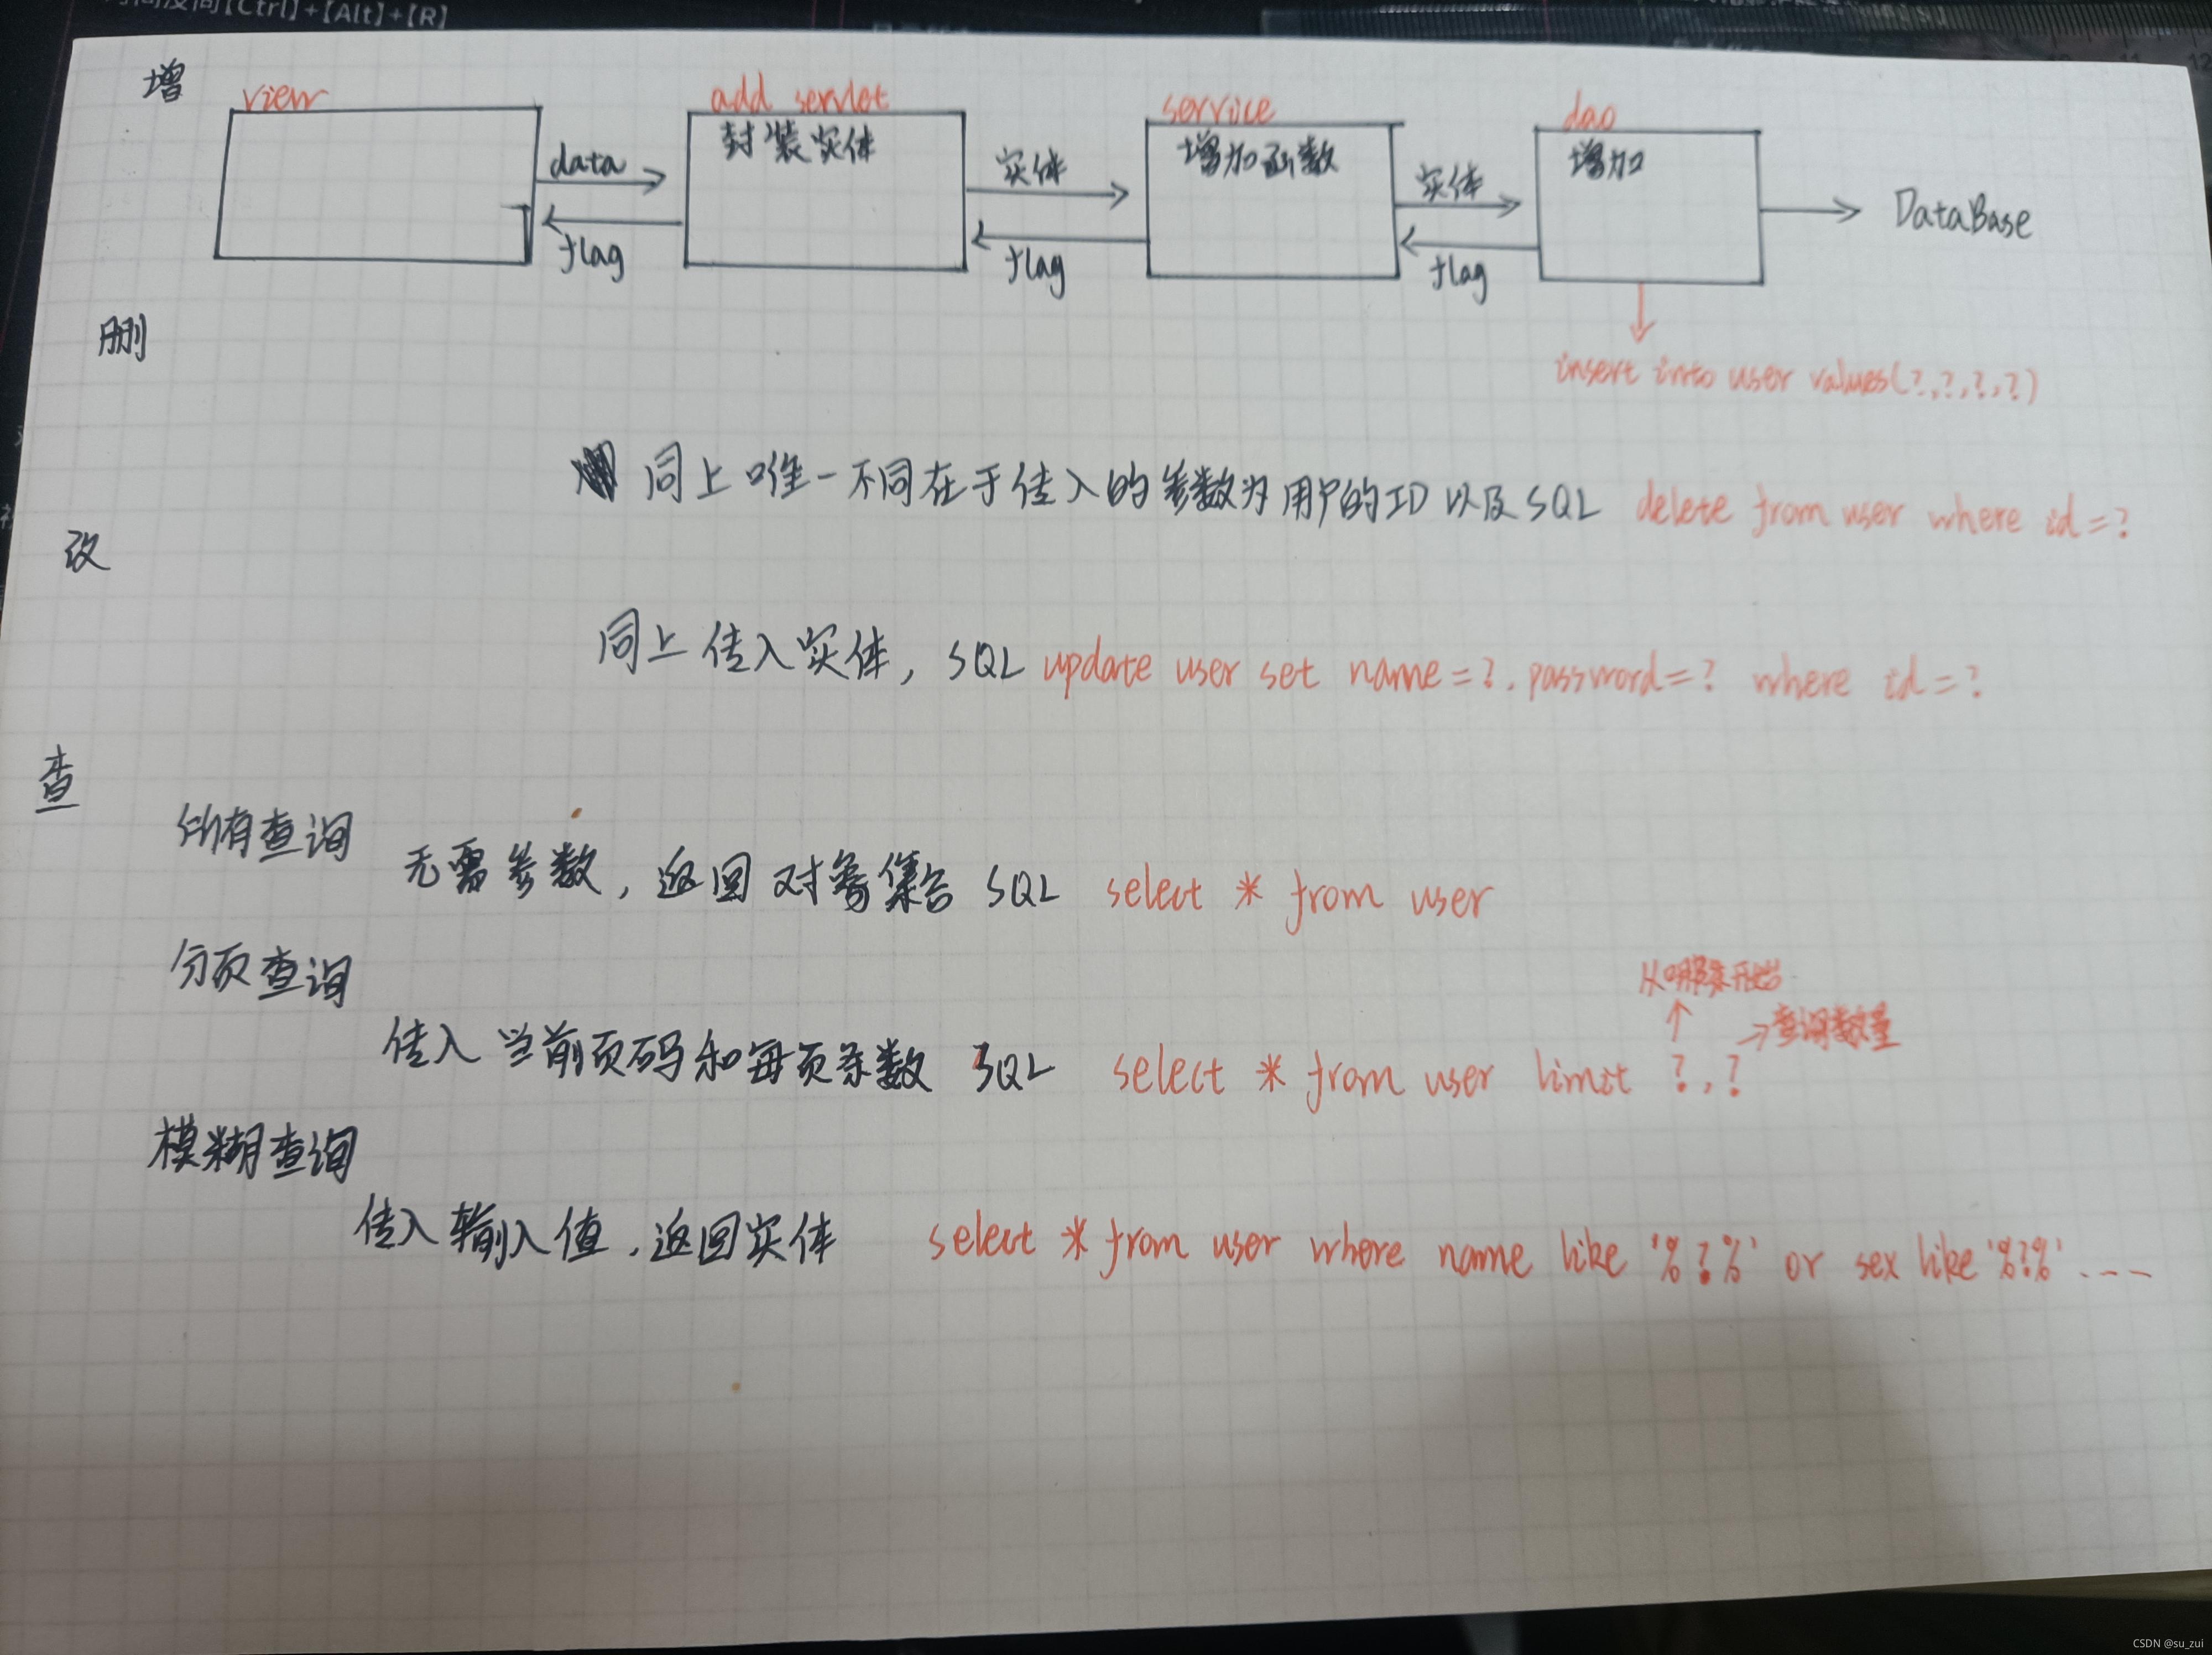 【Ctrl】+【Alt】+【R】
增
view
add servlet
service
dao
封装实体
增加函数
增加
data
实体
实体
DataBase
flag
flag
flag
删
insert into user values(?,?,?,?)
同上唯一不同在于传入的参数为用户的ID以及SQL delete from user where id=?
改
同上传入实体, SQL update user set name=?.password=? where id=?
查
所有查询
无需参数, 返回对象集合 SQL select * from user
分页查询
从哪条开始
查询数量
传入当前页码和每页条数 SQL select * from user limit ?,?
模糊查询
传入输入值,返回实体 select * from user where name like '%?%' or sex like '%?%' ---
CSDN @su_zui